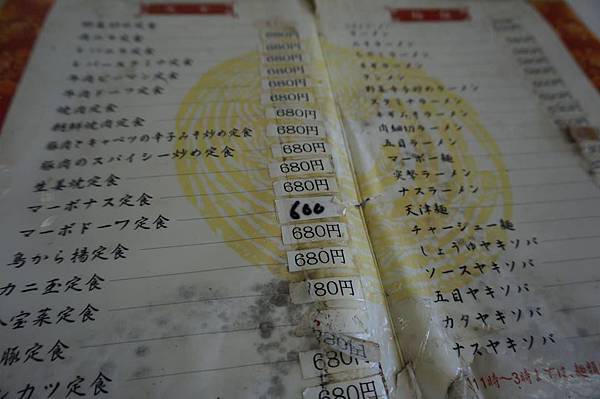 野菜炒め定食
肉ニラ定食
レバニラ定食 680円
レバースタミナ定食 680円
牛肉ピーマン定食 680円
牛肉ドーフ定食 680円
焼肉定食 680円
朝鮮焼肉定食 680円
豚肉とキャベツの辛子みそ炒め定食 680円
豚肉のスパイシー炒め定食 680円
生姜焼定食 680円
マーボナス定食 600
マーボドーフ定食 680円
鳥から揚定食 680円
カニ玉定食 80円
宝菜定食
豚定食 680円
カツ定食 680円
ラーメン
タンメン
野菜辛子炒めラーメン
スタミナラーメン
ネギみそラーメン
肉細切ラーメン
五目ラーメン
マーボー麺
ナスラーメン
天津麺
チャーシュー麺
しょうゆヤキソバ
ソースヤキソバ
五目ヤキソバ
カタヤキソバ
ナスヤキソバ
11時〜3時までは、麺類